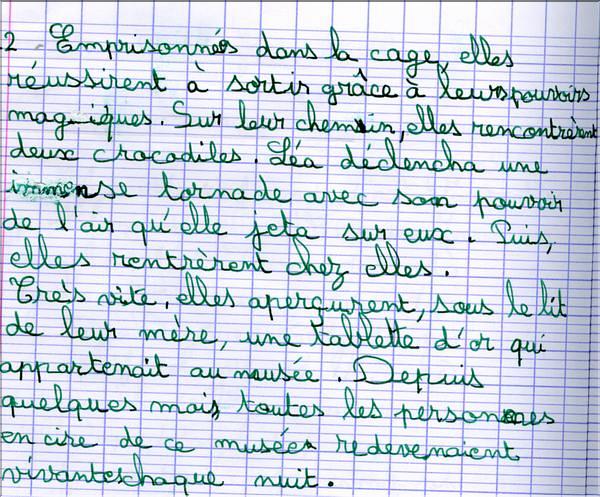 2 Emprisonnées dans la cage, elles
réussirent à sortir grâce à leurs pouvoirs
magiques. Sur leur chemin, elles rencontrèrent
deux crocodiles. Léa déclencha une
immense tornade avec son pouvoir
de l'air qu'elle jeta sur eux. Puis,
elles rentrèrent chez elles.
Très vite, elles aperçurent, sous le lit
de leur mère, une tablette d'or qui
appartenait au musée. Depuis
quelques mois, toutes les personnes
en cire de ce musée redevenaient
vivantes chaque nuit.